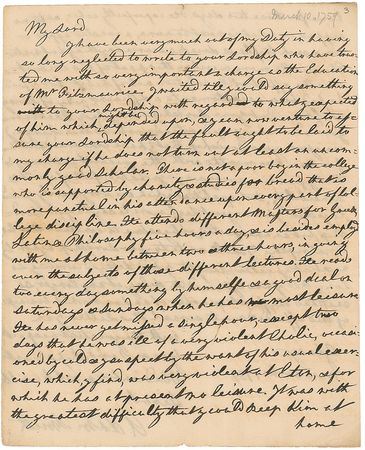 March 10. 1759
3
My Lord
I have been very much out of my Duty in having
so long neglected to write to your Lordship who have trus-
ted me with so very important a charge as the Education
of Mr Fitzmaurice. I waited till I could say something
with to your Lordship with regard to what I expected
of him which might be depended upon, & I can now venture to as-
sure your Lordship that the fault ought to be laid to
my charge if he does not turn out at least an uncom-
monly good Scholar. There is not a poor boy in the college
who is supported by charity & studies for bread that is
more punctual in his attendance upon every part of Col-
lege discipline. He attends different Masters for Greek,
Latin & Philosophy five hours a day, & is besides employd
with me at home between two & three hours, in going
over the subjects of those different lectures. He reads
too every day something by himself & a good deal on
Saturdays & Sundays when he has most leisure.
He has never yet missed a single hour, except two
days that he was ill of a very violent Cholic, occasi-
oned by cold & I suspect by the want of his usual exer-
cise, which, I find, was very violent at Eton, & for
which he has at present no leisure. It was with
the greatest difficulty that I could keep him at
home